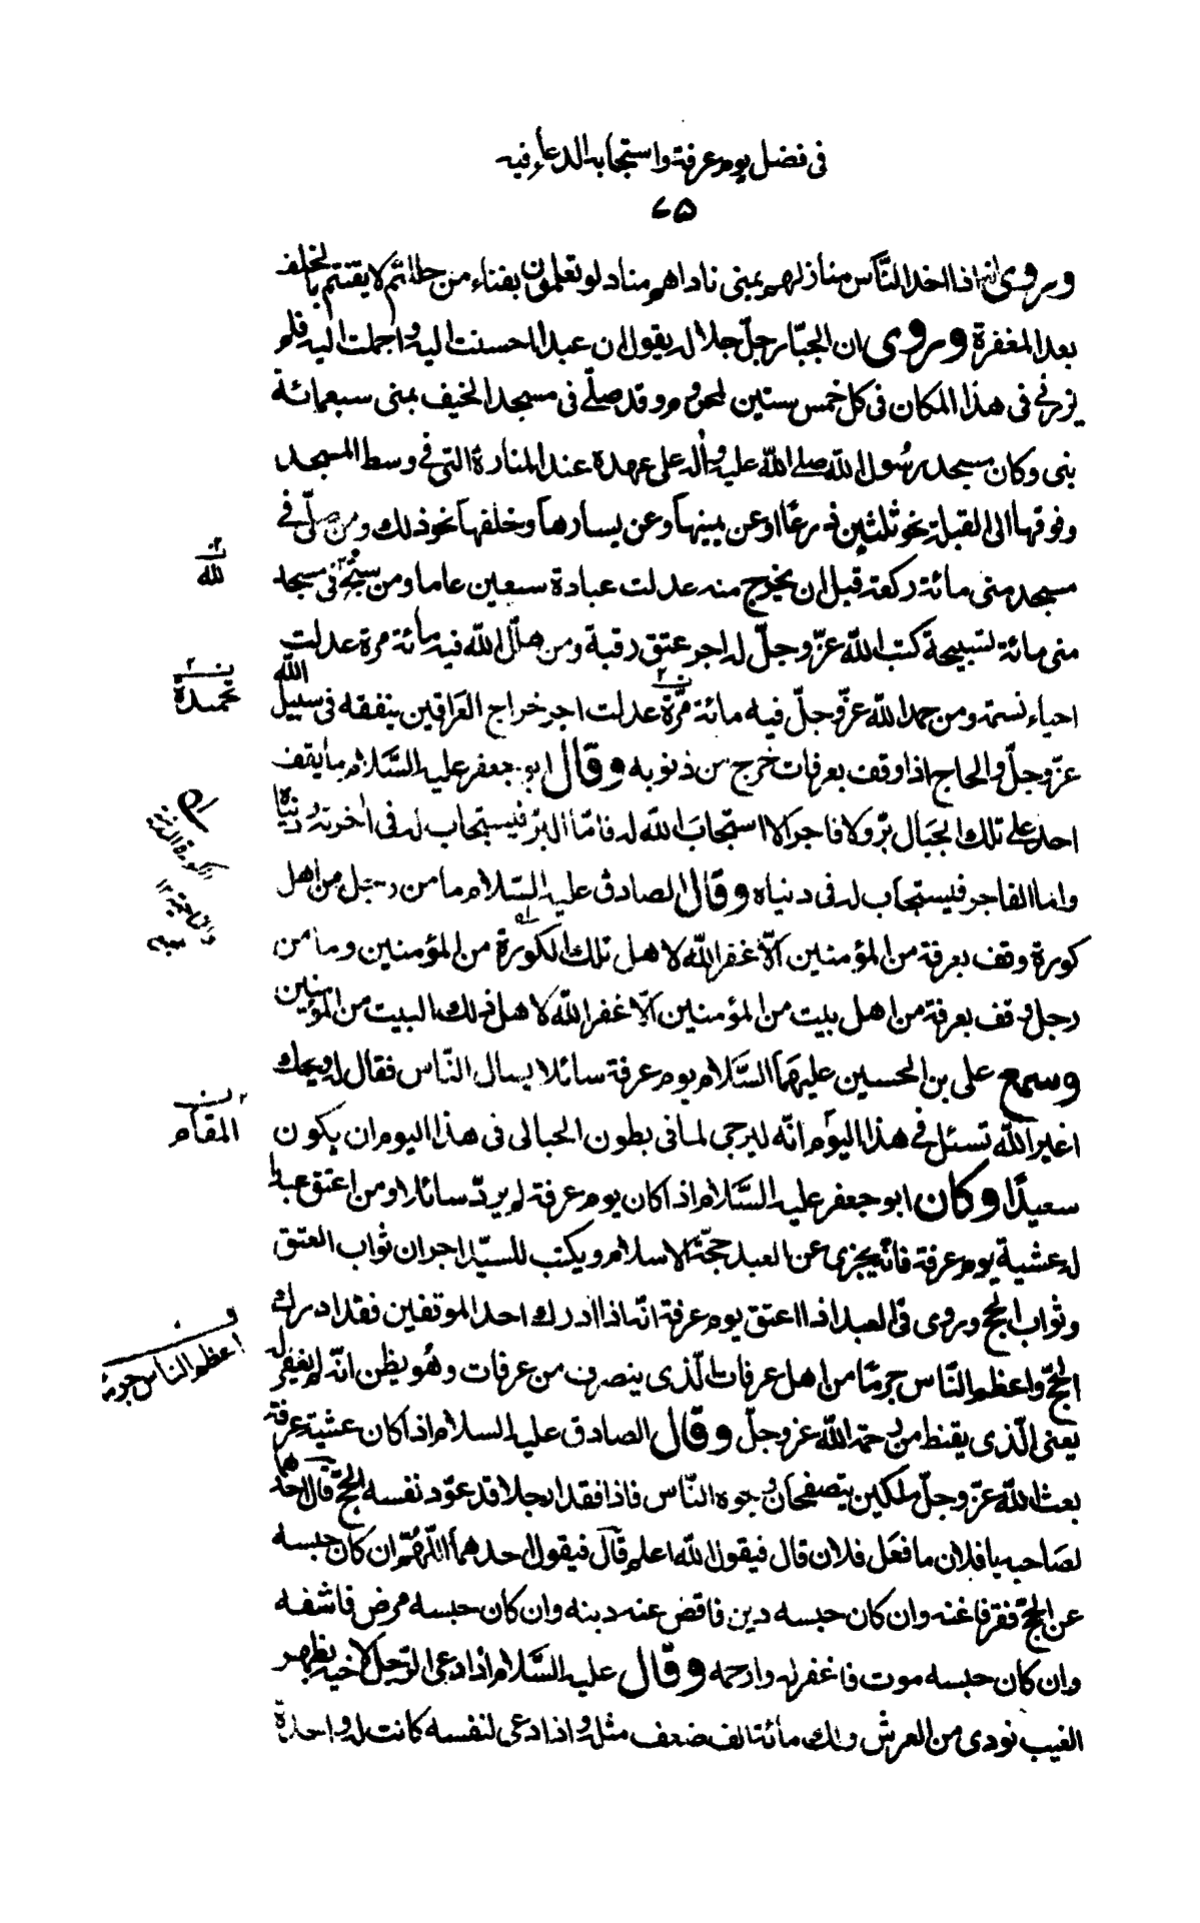 فى فضل يوم عرفة واستجابة الدعاء فيه
وروى انه اذا اخذ الناس منازلهم بمنى ناداهم مناد لو تعلمون بفناء من حللتم لايقنتم بالخلف
بعد المغفرة وروى ان الجبّار جلّ جلاله يقول ان عبدا احسنت اليه واجملت اليه فلم
يزرنى فى هذا المكان فى كل خمس سنين لمحروم وقد صلّى فى مسجد الخيف بمنى سبعمائة
نبى وكان مسجد رسول الله صلى الله عليه وآله على عهده عند المنارة التى فى وسط المسجد
وفوقها الى القبلة نحو ثلثين ذراعا وعن يمينها وعن يسارها وخلفها نحو ذلك ومن صلّى فى
مسجد منى مائة ركعة قبل ان يخرج منه عدلت عبادة سبعين عاما ومن سبّح فى مسجد
لله
منى مائة تسبيحة كتب الله عزّ وجلّ له اجر عتق رقبة ومن هلّل الله فيه مائة مرة عدلت
احياء نسمة ومن حمد الله عزّ وجلّ فيه مائة مرّة عدلت اجر خراج العراقين ينفقه فى سبيل الله
تحميدة
عزّ وجلّ والحاج اذا وقف بعرفات خرج من ذنوبه وقال ابو جعفر عليه السّلام ما يقف
احد على تلك الجبال برّ ولا فاجر الا استجاب الله له فامّا البرّ فيستجاب له فى آخرته ودنياه
واما الفاجر فيستجاب له فى دنياه وقال الصادق عليه السّلام ما من رجل من اهل
كورة وقف بعرفة من المؤمنين الّا غفر الله لاهل تلك الكورة من المؤمنين وما من
رجل وقف بعرفة من اهل بيت من المؤمنين الّا غفر الله لاهل ذلك البيت من المؤمنين
وسمع على بن الحسين عليهما السّلام يوم عرفة سائلا يسال النّاس فقال له ويحك
اغير الله تسئل فى هذا اليوم انّه ليرجى لما فى بطون الحبالى فى هذا اليوم ان يكون
المقام
سعيدًا وكان ابو جعفر عليه السّلام اذا كان يوم عرفة لم يردّ سائلا ومن اعتق عبدا
له عشية يوم عرفة فانّه يجزى عن العبد حجّة الاسلام ويكتب للسيّد اجران ثواب العتق
وثواب الحج وروى فى العبد اذا اعتق يوم عرفة انّه اذا ادرك احد الموقفين فقد ادرك
الحجّ واعظم النّاس جرمًا من اهل عرفات الّذى ينصرف من عرفات وهو يظن انّه لم يغفر له
اعظم الناس جرما
يعنى الّذى يقنط من رحمة الله عز وجلّ وقال الصادق عليه السلام اذا كان عشيّة عرفة
بعث الله عزّ وجلّ ملكين يتصفحان وجوه النّاس فاذا فقدا رجلا قد عوّد نفسه الحجّ قال احدهما
لصاحبه يا فلان ما فعل فلان قال فيقول الله اعلم قال فيقول احدهما اللّهمّ ان كان حبسه
عن الحجّ فقر فاغنه وان كان حبسه دين فاقض عنه دينه وان كان حبسه مرض فاشفه
وان كان حبسه موت فاغفر له وارحمه وقال عليه السّلام اذا دعى الرّجل لاخيه بظهر
الغيب نودى من العرش ولك مائة الف ضعف مثله واذا دعى لنفسه كانت له واحدة